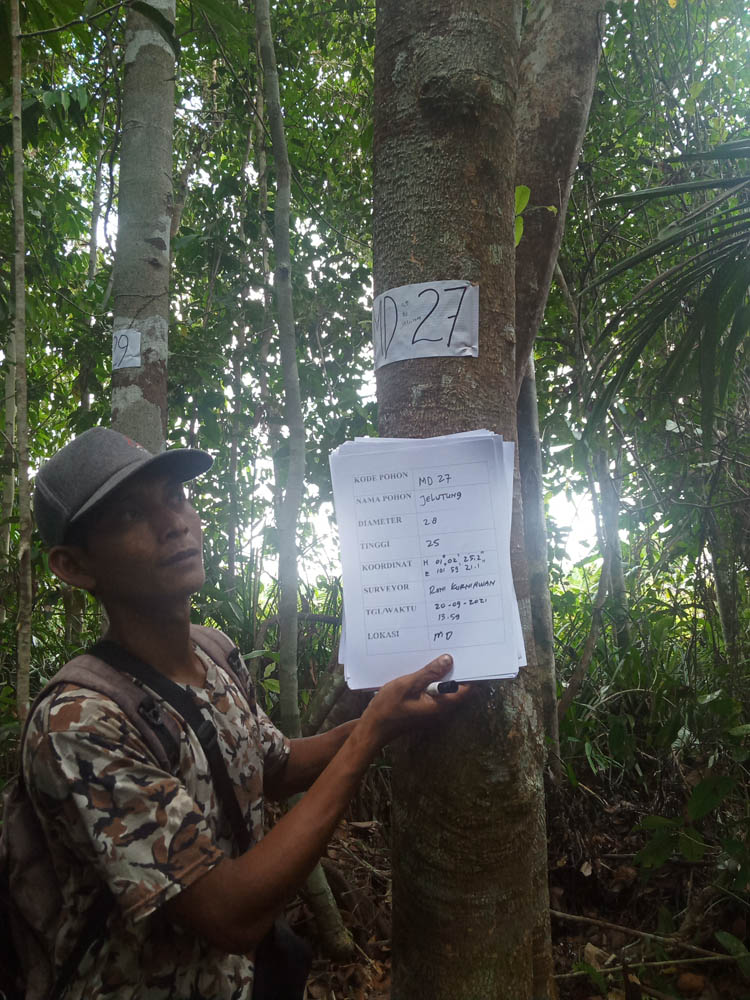 09
MD 27
KODE POHON MD 27
NAMA POHON JELUTUNG
DIAMETER 28
TINGGI 25
KOORDINAT N 01° 02' 25.2"
E 101 59 21.1"
SURVEYOR RONI KURNIAWAN
TGL/WAKTU 20-09-2021
13:59
LOKASI MD